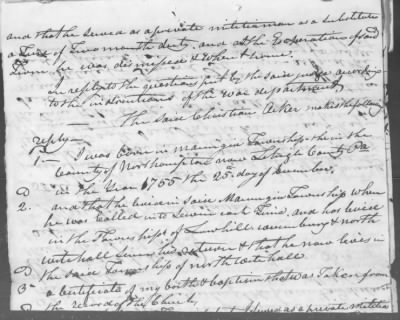 and that he served as a private militiaman as a substitute
a Tour of Two months duty. and at the Experation of said
he was dismissed & when home.
in reply to the questions put by the said judge according
to the indirections of the war department
The said Christian Acker makes the following
reply—
1— I was born in macungie Township then in the
County of Northampton now Lehigh County Pa
in the Year 1755 the 25. day of December.
2. and that he lived in said Macungie Township when
he was Called into Service each Time, and has lived
in the Townships of Lowhill & north
whitehall since his return & that he now lives in
the said Township of north whitehall
3 a Certificate of my birth & baptism that was Taken from
the record of the Church
served as a private militia